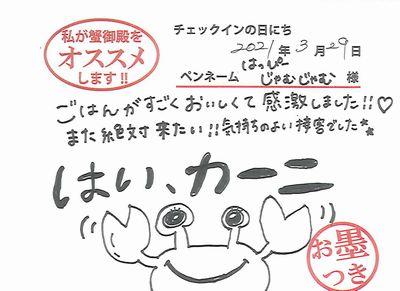 私が蟹御殿を
オススメ
します!!
チェックインの日にち
2021年3月29日
はっぴー
ペンネーム じゃむじゃむ 様
ごはんがすごくおいしくて感激しました!!♡
また絶対来たい!!気持ちのよい接客でした★☆
はい、カーニ
お墨
つき